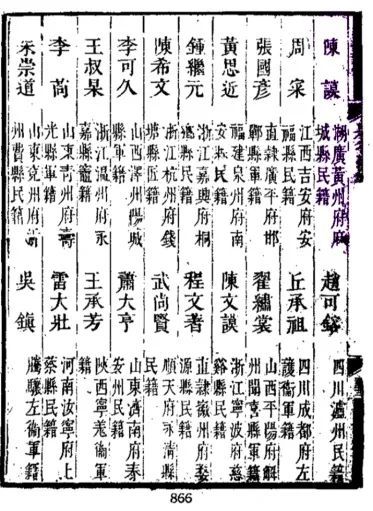 陳謨 湖廣黃州府麻城縣民籍
趙可 四川瀘州民籍
周寀 江西吉安府安福縣民籍
丘承祖 四川成都府左護衛軍籍
張國彥 直隸廣平府邯鄲縣軍籍
翟繡裳 山西平陽府解州聞喜縣軍籍
黃思近 福建泉州府南安縣民籍
陳文謨 浙江寧波府慈谿縣民籍
鍾繼元 浙江嘉興府桐鄉縣民籍
程文著 直隸徽州府婺源縣民籍
陳希文 浙江杭州府錢塘縣匠籍
武尚賢 順天府永清縣民籍
李可久 山西澤州陽城縣軍籍
蕭大亨 山東濟南府泰安州民籍
王叔杲 浙江溫州府永嘉縣竈籍
王承芳 陝西寧羌衛軍籍
李 山東青州府壽光縣軍籍
雷大壯 河南汝寧府上蔡縣民籍
宋崇道 山東兗州府沂州費縣民籍
吳鎮 騰驤左衛軍籍
866